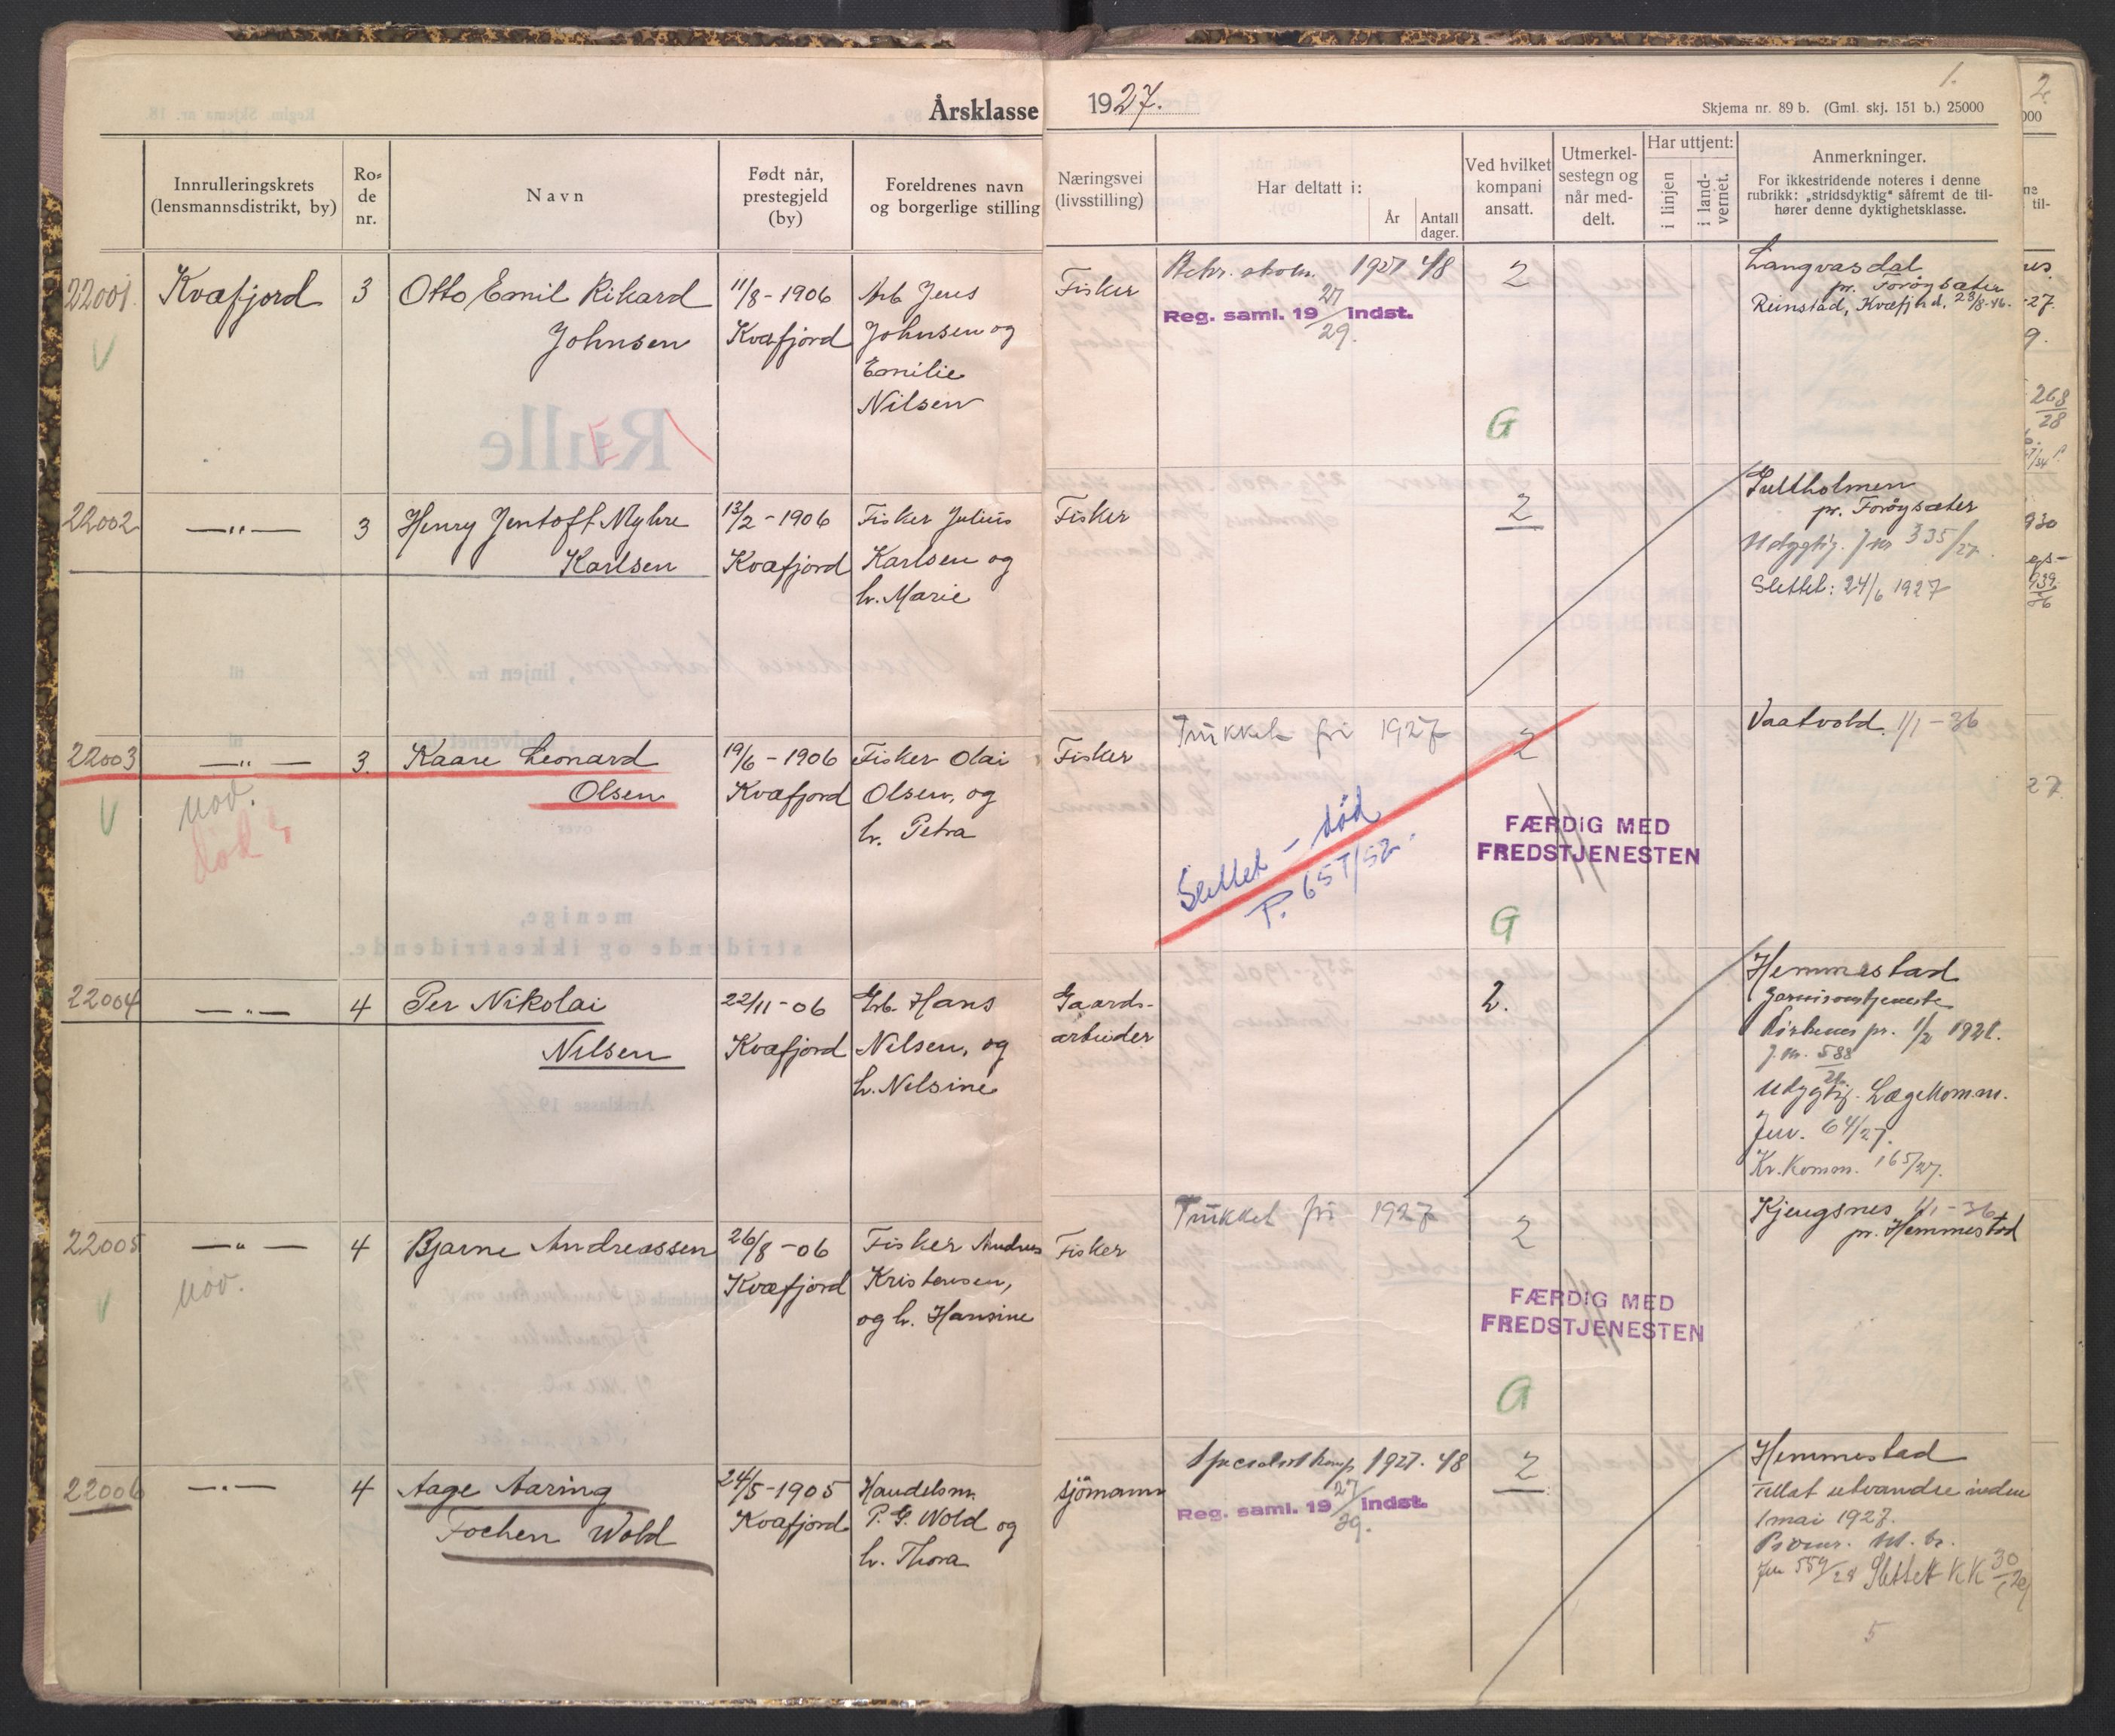 Årsklasse 1927.
1.
Skjema nr. 89 b. (Gml. skj. 151 b.) 25000
Innrulleringskrets
(lensmannsdistrikt, by)
Ro-
de
nr.
Navn
Født når,
prestegjeld
(by)
Foreldrenes navn
og borgerlige stilling
Næringsvei
(livsstilling)
Har deltatt i:
År
Antall
dager.
Ved hvilket
kompani
ansatt.
Utmerkel-
sestegn og
når med-
delt.
Har uttjent:
i linjen
i land-
vernet.
Anmerkninger.
For ikkestridende noteres i denne
rubrikk: „stridsdyktig" såfremt de til-
hører denne dyktighetsklasse.
22001
Kvæfjord
3
Otto Emil Rikard
Johnsen
11/8 - 1906
Kvæfjord
Arb. Jens
Johnsen og
Emilie
Nilsen
Fisker
Rekr. skolen. 1927 48
Reg. saml. 19 27/29. indst.
2
G
Langvasdal
pr. Forøysæter
Reinstad, Kvæfjord. 23/8-46.
22002
—„—
3
Henry Jentoft Myhre
Karlsen
13/2 - 1906
Kvæfjord
Fisker Julius
Karlsen og
h. Marie
Fisker
2
Gultholmen
pr. Forøysæter
Udygtig. Jnr 335/27.
Slettet: 24/6 1927
22003
—„—
nov.
død
3.
Kaare Leonard
Olsen
19/6 - 1906
Kvæfjord
Fisker Olai
Olsen, og
h. Petra
Fisker
Trukket fri 1927
Slettet - død
P. 657/52.
2
FÆRDIG MED
FREDSTJENESTEN
G
Vaatvold 1/1 - 36
22004
—„—
4
Per Nikolai
Nilsen
22/11 - 06
Kvæfjord
Grb. Hans
Nilsen, og
h. Nilsine
Gaards-
arbeider
2.
Hemmestad
Garnisonstjeneste
Kirkenes pr. 1/2 1928.
J. nr. 588
Udygtig. Lægekomm.
Jnr. 64/27.
Kr. Komm. 165/27.
22005
—„—
nov.
4
Bjarne Andreassen
26/8 - 06
Kvæfjord
Fisker Andreas
Kristensen,
og h. Hansine
Fisker
Trukket fri 1927
2
FÆRDIG MED
FREDSTJENESTEN
G
Kjengsnes 1/1 - 36
pr. Hemmestad
22006
—„—
4
Aage Aaring
Fochen Wold
24/5 - 1905
Kvæfjord
Handelsm.
P. G. Wold og
h. Thora
sjömann
Specialistkomp 1927. 48
Reg. saml. 19 27/29. indst.
2
Hemmestad
Tillat utvandre inden
1 mai 1927.
Jnr 559/28 Slettet KK 30
5
2.